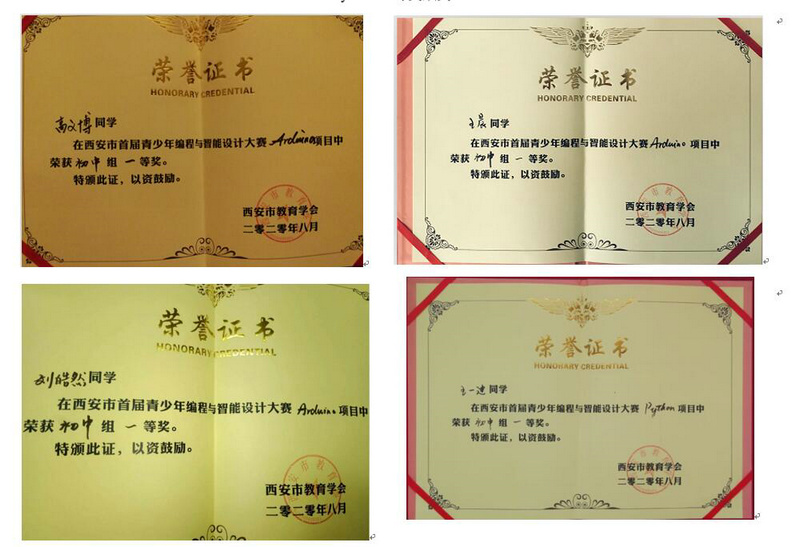 荣誉证书
HONORARY CREDENTIAL
高文博同学
在西安市首届青少年编程与智能设计大赛Arduino项目中
荣获初中组一等奖。
特颁此证，以资鼓励。
西安市教育学会
二零二零年八月
荣誉证书
HONORARY CREDENTIAL
王晨同学
在西安市首届青少年编程与智能设计大赛Arduino项目中
荣获初中组一等奖。
特颁此证，以资鼓励。
西安市教育学会
二零二零年八月
荣誉证书
HONORARY CREDENTIAL
刘皓然同学
在西安市首届青少年编程与智能设计大赛Arduino项目中
荣获初中组一等奖。
特颁此证，以资鼓励。
西安市教育学会
二零二零年八月
荣誉证书
HONORARY CREDENTIAL
同学
在西安市首届青少年编程与智能设计大赛Python项目中
荣获初中组一等奖。
特颁此证，以资鼓励。
西安市教育学会
二零二零年八月